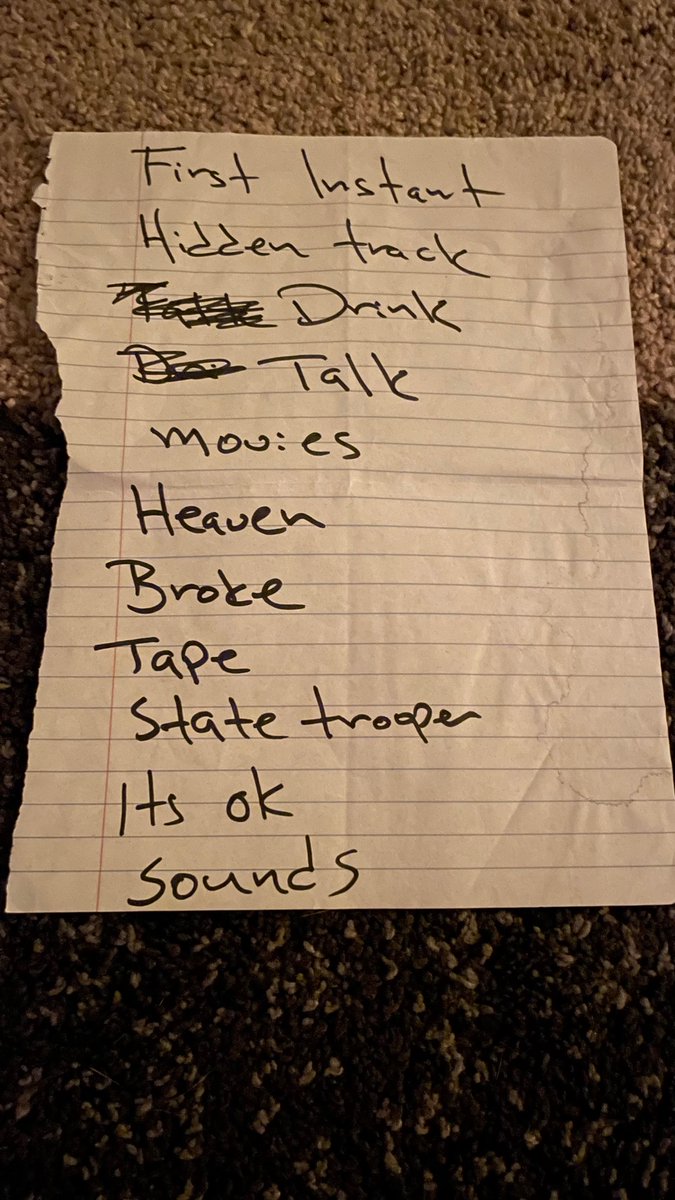 First Instant
Hidden track
Drink
Talk
movies
Heaven
Broke
Tape
State trooper
Its ok
sounds